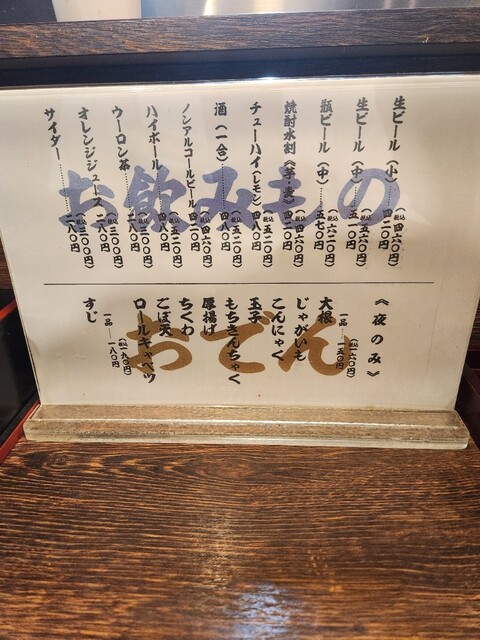 お飲みもの
生ビール（小）……四二〇円（税込四六〇円）
生ビール（中）……五一〇円（税込五六〇円）
瓶ビール（中）……五七〇円（税込六二〇円）
焼酎水割《芋・麦》四二〇円（税込四六〇円）
チューハイ（レモン）四八〇円（税込五二〇円）
酒（一合）……四八〇円（税込五二〇円）
ノンアルコールビール 四二〇円（税込四六〇円）
ハイボール……四八〇円（税込五二〇円）
ウーロン茶……二八〇円（税込三〇〇円）
オレンジジュース 二八〇円（税込三〇〇円）
サイダー……二八〇円（税込三〇〇円）
おでん
《夜のみ》
一品 一五〇円（税込一六〇円）
大根
じゃがいも
こんにゃく
玉子
もちきんちゃく
厚揚げ
ちくわ
ごぼ天
ロールキャベツ
一品 一八〇円（税込一九〇円）
すじ